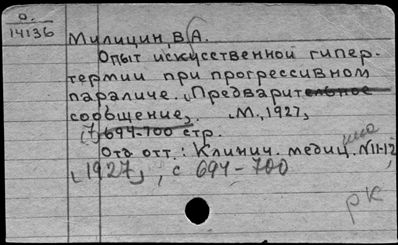 О.
14136
Милицин, В А.
Опыт искусственной гипер-
термии при прогрессивном
параличе. „Предварительное
сообщение„. „М., 1927„
(7) 694-700 стр.
Отд отт.: Клинич. медиц. №11-12,
„1927„, с 694-700
рк